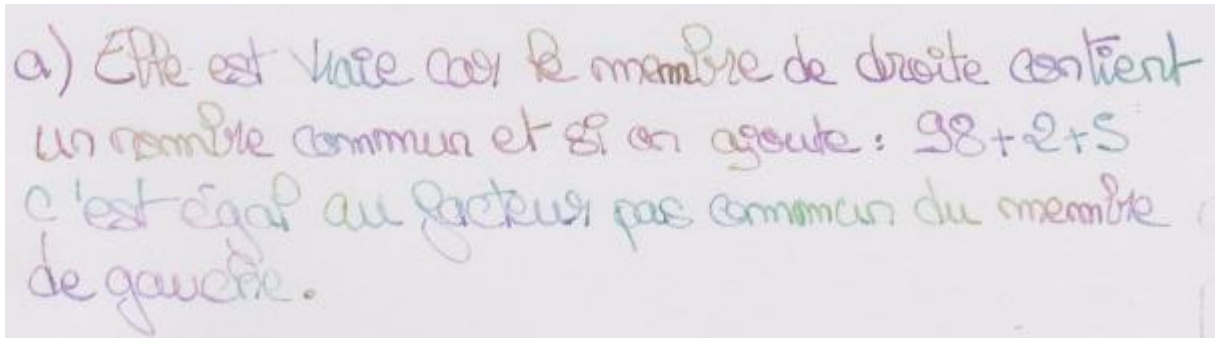 a) Elle est vraie car le membre de droite contient
un nombre commun et si on ajoute : 98+2+5
c'est égal au facteur pas commun du membre
de gauche.